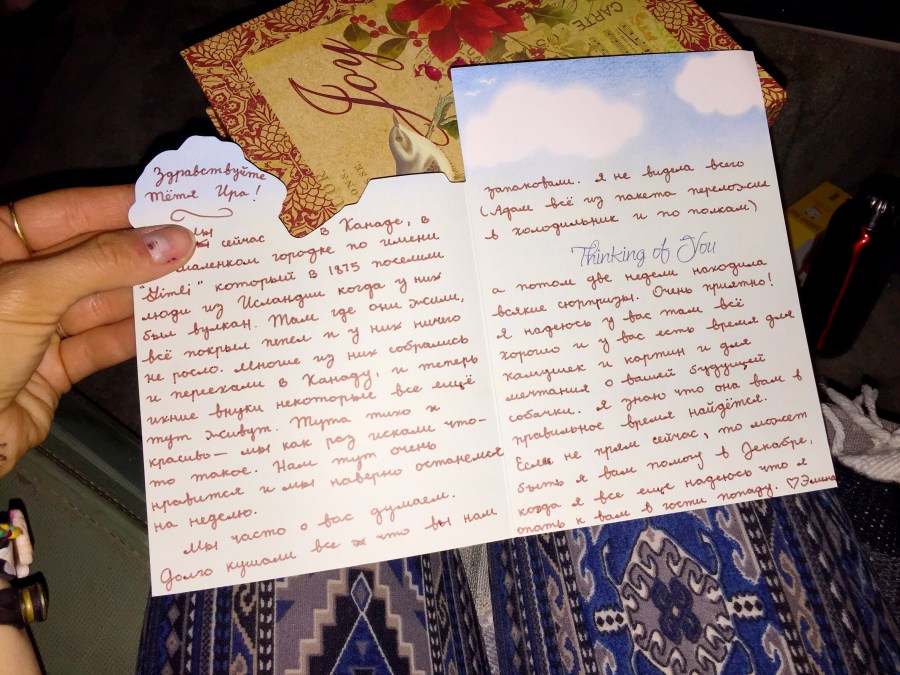 Joy
CARTE
Здравствуйте
тётя Ира!
Мы
сейчас в Канаде, в
маленком городке по имени
"Gimli" который в 1875 поселили
люди из Исландии когда у них
был вулкан. Там где они жили,
всё покрыл пепел и у них ничего
не росло. Многие из них собрались
и переехали в Канаду, и теперь
ихние внуки некоторые все ещё
тут живут. Тута тихо и
красиво — мы как раз искали что-
то такое. Нам тут очень
нравится и мы наверно останемся
на неделю.
Мы часто о вас думаем.
Долго кушали все что вы нам
запаковали. я не видела всего
(Адам всё из пакета переложил
в холодильник и по полкам)
Thinking of You
а потом две недели находила
всякие сюрпризы. Очень приятно!
Я надеюсь у вас там всё
хорошо и у вас есть время для
камушек и картин и для
мечтания о вашей будущей
собачки. Я знаю что она вам в
правильное время найдётся.
Если не прям сейчас, то может
быть я вам помогу в Декабре,
когда я все еще надеюсь что я
опять к вам в гости попаду. ♡Элина